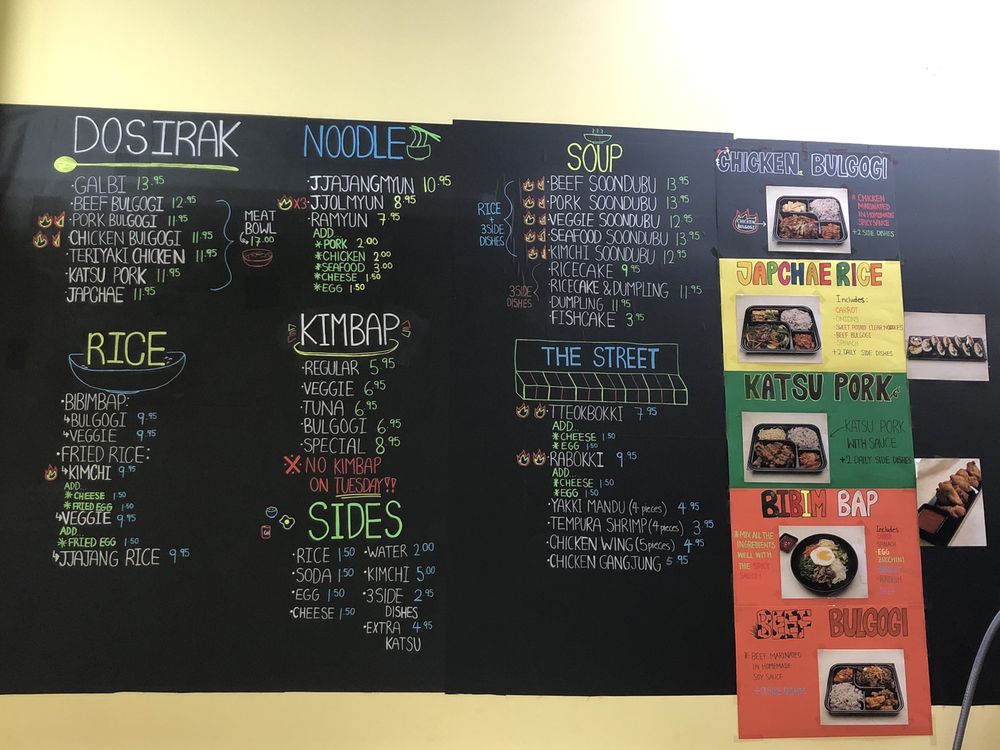 DOSIRAK
·GALBI 13.95
·BEEF BULGOGI 12.95
·PORK BULGOGI 11.95
·CHICKEN BULGOGI 11.95
·TERIYAKI CHICKEN 11.95
·KATSU PORK 11.95
·JAPCHAE 11.95
MEAT
BOWL
↳17.00
RICE
·BIBIMBAP:
↳BULGOGI 9.95
↳VEGGIE 9.95
·FRIED RICE:
↳KIMCHI 9.95
ADD...
*CHEESE 1.50
*FRIED EGG 1.50
↳VEGGIE 9.95
ADD...
*FRIED EGG 1.50
↳JJAJANG RICE 9.95
NOODLE
·JJAJANGMYUN 10.95
x3·JJOLMYUN 8.95
·RAMYUN 7.95
ADD
*PORK 2.00
*CHICKEN 2.00
*SEAFOOD 3.00
*CHEESE 1.50
*EGG 1.50
KIMBAP
·REGULAR 5.95
·VEGGIE 6.95
·TUNA 6.95
·BULGOGI 6.95
·SPECIAL 8.95
NO KIMBAP
ON TUESDAY!!
SIDES
·RICE 1.50
·SODA 1.50
·EGG 1.50
·CHEESE 1.50
·WATER 2.00
·KIMCHI 5.00
·3SIDE 2.95
DISHES
·EXTRA 4.95
KATSU
SOUP
RICE
+
3SIDE
DISHES
·BEEF SOONDUBU 13.95
·PORK SOONDUBU 13.95
·VEGGIE SOONDUBU 12.95
·SEAFOOD SOONDUBU 13.95
·KIMCHI SOONDUBU 12.95
3SIDE
DISHES
·RICECAKE 9.95
·RICECAKE & DUMPLING 11.95
·DUMPLING 11.95
·FISHCAKE 3.95
THE STREET
·TTEOKBOKKI 7.95
ADD...
*CHEESE 1.50
*EGG 1.50
·RABOKKI 9.95
ADD...
*CHEESE 1.50
*EGG 1.50
·YAKKI MANDU (4 pieces) 4.95
·TEMPURA SHRIMP (4 pieces) 3.95
·CHICKEN WING (5 pieces) 4.95
·CHICKEN GANGJUNG 5.95
CHICKEN BULGOGI
CHICKEN
BULGOGI
* CHICKEN
MARINATED
IN HOMEMADE
SPICY SAUCE
+2 SIDE DISHES
JAPCHAE RICE
Includes:
·CARROT
·ONIONS
·SWEET POTATO CLEAR NOODLES
·BEEF BULGOGI
·SPINACH
+2 DAILY SIDE DISHES
KATSU PORK
KATSU PORK
WITH SAUCE
+2 DAILY SIDE DISHES
BIBIM BAP
*MIX ALL THE
INGREDIENTS
WELL WITH
THE SPICY
SAUCE!
Includes:
·SPINACH
·EGG
·ZUCCHINI
·RADISH
BEEF BULGOGI
* BEEF MARINATED
IN HOMEMADE
SOY SAUCE
DISHES